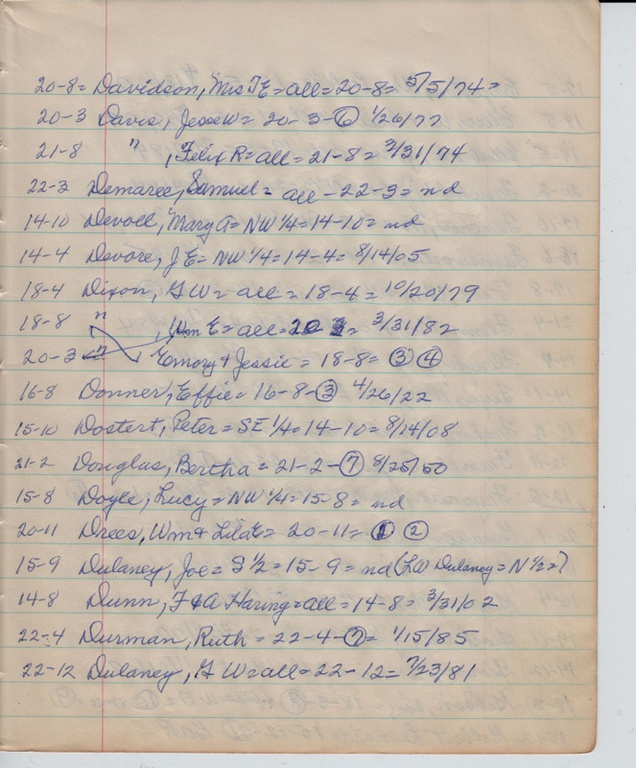 20-8= Davidson, Mrs T E = all = 20-8= 5/5/74 =
20-3 Davis, Jesse W = 20-3-⑥ 1/26/77
21-8 " , Felix R = all = 21-8 = 3/31/74
22-3 Demaree, Samuel = all - 22-3 = nd
14-10 Devoll, Mary A = NW 1/4 = 14-10 = nd
14-4 Devore, J E = NW 1/4 = 14-4 = 8/14/05
18-4 Dixon, G W = all = 18-4 = 10/20/79
18-8 " , Wm E = all = 20 3 = 3/31/82
20-3 " Emory & Jessie = 18-8 = ③ ④
16-8 Donner, Effie = 16-8-③ 4/26/22
15-10 Dostert, Peter = SE 1/4 = 14-10 = 8/14/08
21-2 Douglas, Bertha = 21-2-⑦ 8/25/50
15-8 Doyle, Lucy = NW 1/4 = 15-8 = nd
20-11 Drees, Wm & Lila E = 20-11 = ① ②
15-9 Dulaney, Joe = S 1/2 = 15-9 = nd (LW Dulaney = N 1/2 =)
14-8 Dunn, F & A Haring = all = 14-8 = 3/31/02
22-4 Durman, Ruth = 22-4-⑦ = 1/15/85
22-12 Dulaney, G W = all = 22-12 = 7/23/81